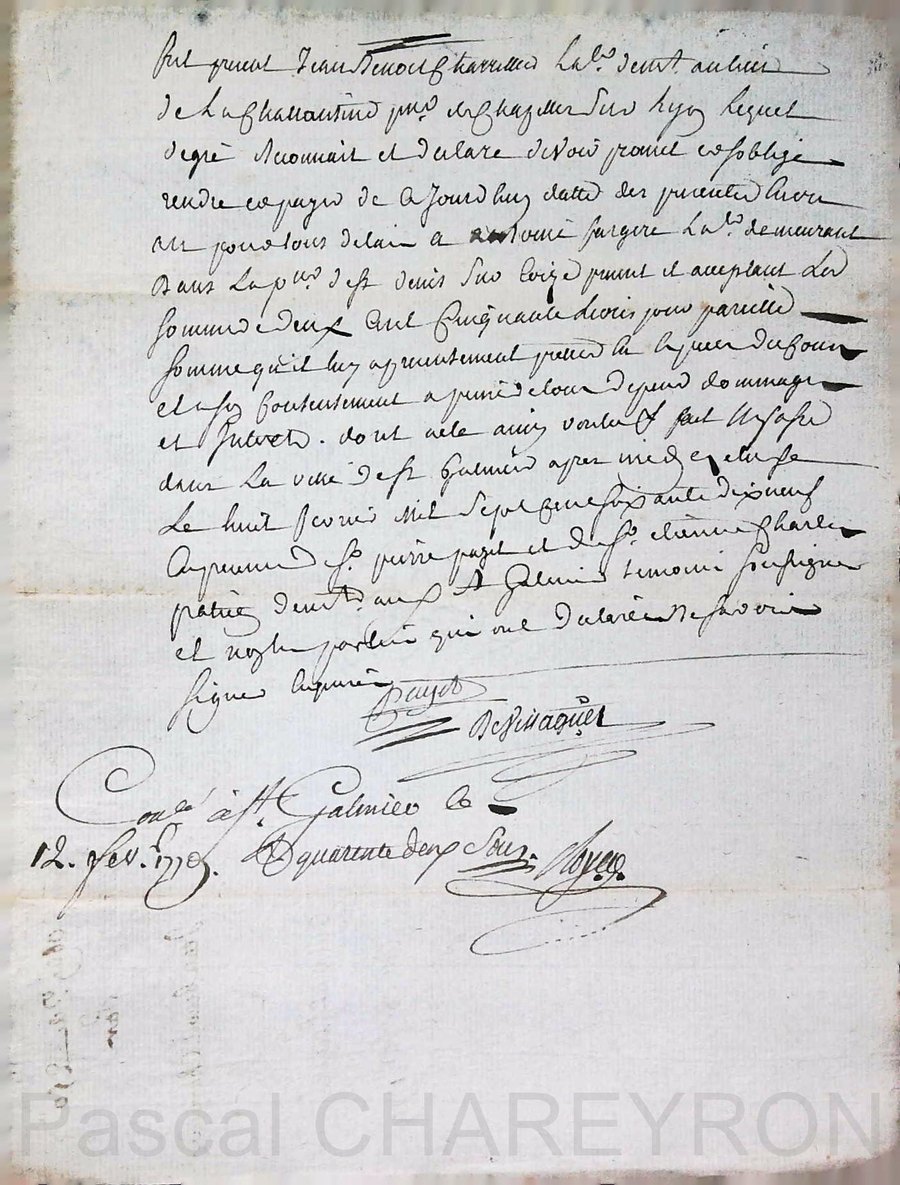 fut present Jean Benoit Lab.r demt. au lieu
de la prse. de Chazelles sur Lyon lequel
degré reconnait et declare devoir promet et soblige
rendre et payer de ce jourdhuy datte des presentes
pour tous delais a antoine fargere Lab.r demeurant
dans La prse d st denis sur Coize present et acceptant La
somme de deux cent Cinquante livres pour pareille
somme qu'il luy a presentement
et a son Contentement a peine de tous depens dommages
et Interets. dont acte ainsy voulu fait et passé
dans La ville de st Galmier apres midy en etude
Le huit fevrier Mil Sept Cent soixante dix neuf
En presence de Sr. pierre payet et de Sr. etienne Charles
demt. aux st Galmier temoins soussignes
et non les parties qui ont declarées ne savoir
signer
Payet
Con.lé à St. Galmier le
12. fev.r 1779. R quarente deux Sous.
Pascal CHAREYRON